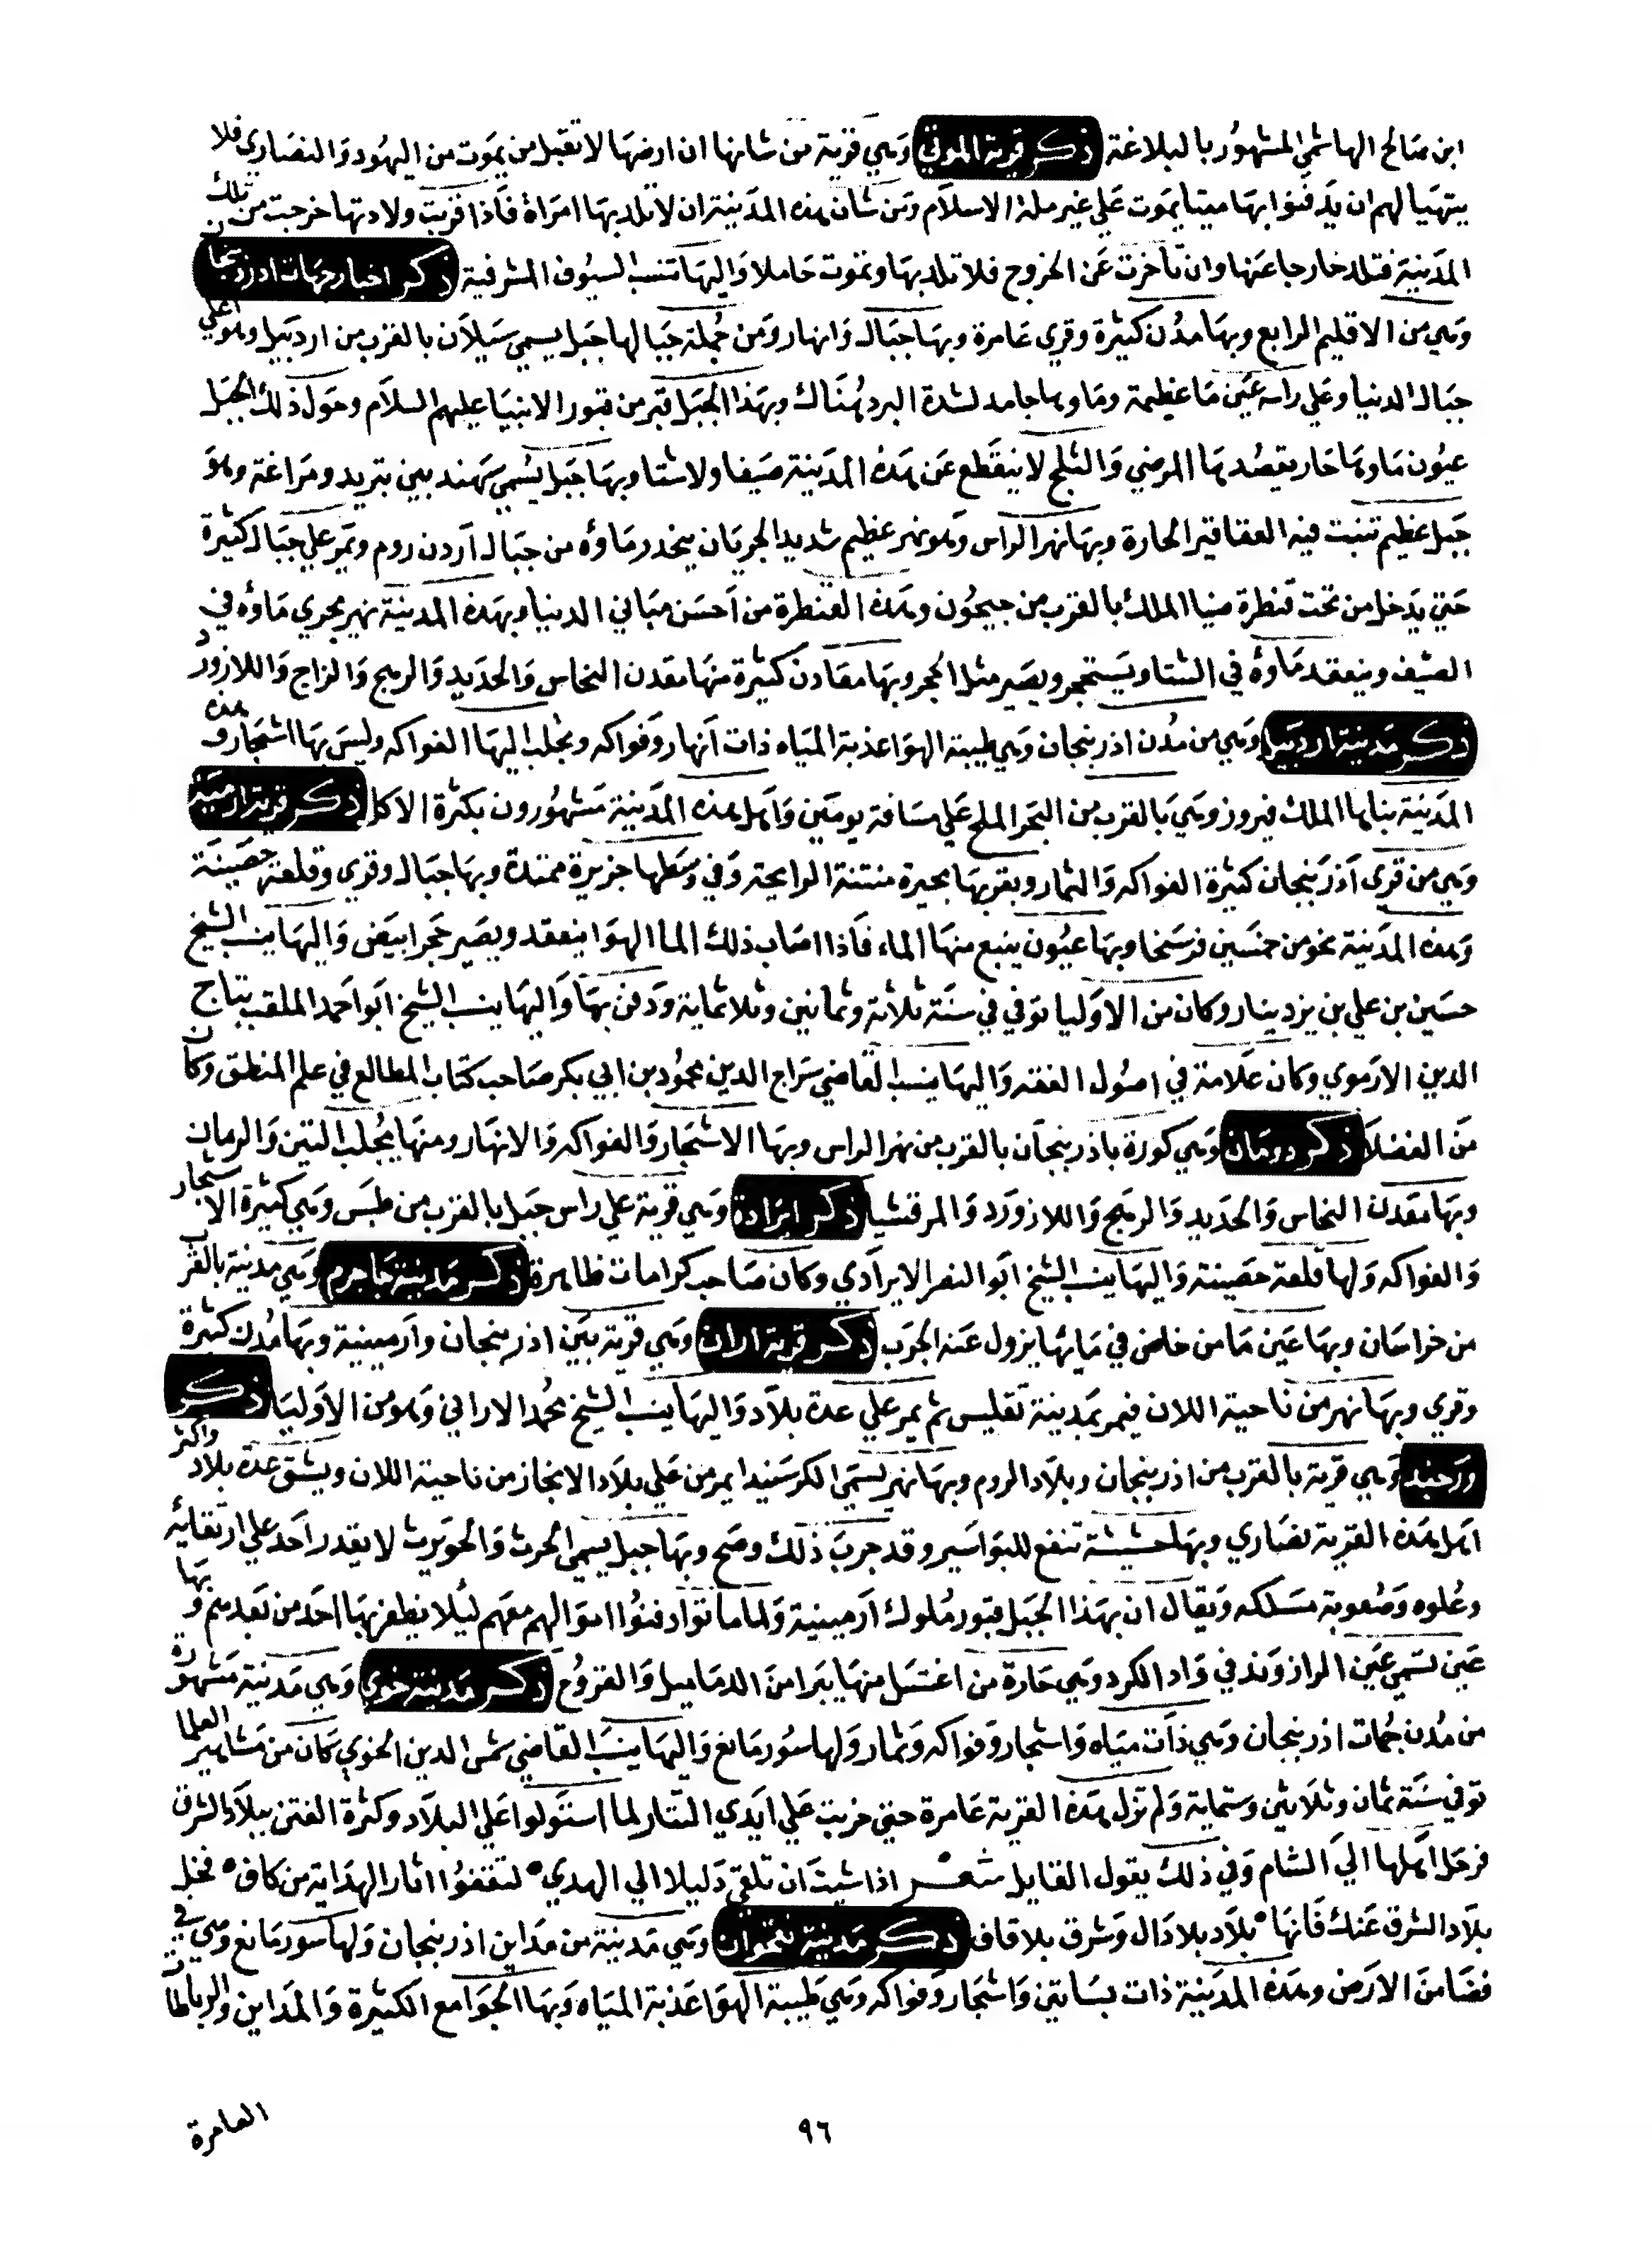 ابن صالح الهاشمي المشهور بالبلاغة ذكر قرية الموتي وهي قرية من شانها ان ارضها لا تقبل من يموت من اليهود والنصاري فلا
يتهيا لهم ان يدفنوا بها ميتا يموت علي غير ملة الاسلام ومن شان هذه المدينة ان لا تلد بها امراة فاذا قربت ولادتها خرجت من تلك
المدينة فتلد خارجا عنها وان تاخرت عن الخروج فلا تلد بها وتموت حاملا واليها تنسب السيوف المشرفية ذكر اخبار جهات اذربيجان
وهي من الاقليم الرابع وبها مدن كثيرة وقري عامرة وبها جبال وانهار ومن جملة جبالها جبل يسمي سيلان بالقرب من اردبيل وهو اعلي
جبال الدنيا وعلي راسه عين ما عظيمة وماوها جامد لشدة البرد هناك وبهذا الجبل قبر من قبور الانبيا عليهم السلام وحول ذلك الجبل
عيون ماوها حار يقصدها المرضي والثلج لا ينقطع عن هذه المدينة صيفا ولا شتا وبها جبل يسمي سهند بين تبريد ومراغة وهو
جبل عظيم تنبت فيه العقاقير الحارة وبها نهر الراس وهو نهر عظيم شديد الجريان ينحدر ماوه من جبال اردن روم ويمر علي جبال كثيرة
حتي يدخل من تحت قنطرة ضيا الملك بالقرب من جيحون وهذه القنطرة من احسن مباني الدنيا وبهذه المدينة نهر يجري ماؤه في
الصيف وينعقد ماوه في الشتا ويستحجر ويصير مثل الحجر وبها معادن كثيرة منها معدن النحاس والحديد والرهج والزاج واللازورد
ذكر مدينة اردبيل وهي من مدن اذربيجان وهي طيبة الهوا عذبة المياه ذات انهار وفواكه ويجلب اليها الفواكه وليس بها اشجار وهذه
المدينة بناها الملك فيروز وهي بالقرب من البحر الملح علي مسافة يومين واهل هذه المدينة مشهورون بكثرة الاكل ذكر قرية ارمية
وهي من قري اذربيجان كثيرة الفواكه والثمار وبقربها بحيرة منتنة الرايحة وفي وسطها جزيرة ممتدة وبها جبال وقري وقلعة حصينة
وهذه المدينة نحو من خمسين فرسخا وبها عيون ينبع منها الماء فاذا اصاب ذلك الما الهوا ينعقد ويصير حجر ابيض واليها ينسب الشيخ
حسين بن علي بن يزدينار وكان من الاوليا توفي في سنة ثلاثة وثمانين وثلاثماية ودفن بها واليها ينسب الشيخ ابو احمد الملقب بتاج
الدين الارموي وكان علامة في اصول الفقه واليها ينسب القاضي سراج الدين محمود بن ابي بكر صاحب كتاب المطالع في علم المنطق وكان
من الفضلا ذكر وهي كورة باذربيجان بالقرب من نهر الراس وبها الاشجار والفواكه والانهار ومنها يجلب التين والرمان
وبها معدن النحاس والحديد والرهج واللازورد والمرقشيا ذكر ايرادة وهي قرية علي راس جبل بالقرب من طبس وهي كثيرة الاشجار
والفواكه ولها قلعة حصينة واليها ينسب الشيخ ابو النصر الايرادي وكان صاحب كرامات ظاهرة ذكر مدينة جاجرم وهي مدينة بالقرب
من خراسان وبها عين ما من خاض في مايها يزول عنه الجرب ذكر قرية اران وهي قرية بين اذربيجان وارمينية وبها مدن كثيرة
وقري وبها نهر من ناحية اللان فيمر بمدينة تفليس ثم يمر علي عدة بلاد واليها ينسب الشيخ محمد الاراني وهو من الاوليا ذكر
وهي قرية بالقرب من اذربيجان وبلاد الروم وبها نهر يسمي الكر سنيد ايمر من علي بلاد الابخاز من ناحية اللان ويشق عدة بلاد واكثر
اهل هذه القرية نصاري وبها حشيشة تنفع للبواسير وقد جرب ذلك وصح وبها جبل يسمي الحرث والحويرث لا يقدر احد علي ارتقايه
وعلوه وصعوبة مسلكه ويقال ان بهذا الجبل قبور ملوك ارمينية ولما ماتوا دفنوا اموالهم معهم ليلا يظفر بها احد من بعدهم وبها
عين تسمي عين الراز وند في واد الكرد وهي حارة من اغتسل منها يبرا من الدماميل والقروح ذكر مدينة خوي وهي مدينة مشهورة
من مدن جهات اذربيجان وهي ذات مياه واشجار وفواكه وثمار ولها سور مانع واليها ينسب القاضي شمس الدين الخوي كان من مشاهير العلما
توفي سنة ثمان وثلاثين وستماية ولم تزل هذه القرية عامرة حتي خربت علي ايدي التتار لما استولوا علي البلاد وكثرة الفتن ببلاد الشرق
فرحل اهلها الي الشام وفي ذلك يقول القايل شعر اذا شيت ان تلقي دليلا الي الهدي ° لتقفوا اثار الهداية من كاف ° فخل
بلاد الشرق عنك فانها ° بلاد بلا دال وشرق بلا قاف ذكر مدينة وهي مدينة من مداين اذربيجان ولها سور مانع وهي في
فضا من الارض وهذه المدينة ذات بساتين واشجار وفواكه وهي طيبة الهوا عذبة المياه وبها الجوامع الكثيرة والمداين والرباطات
العامرة
٩٦